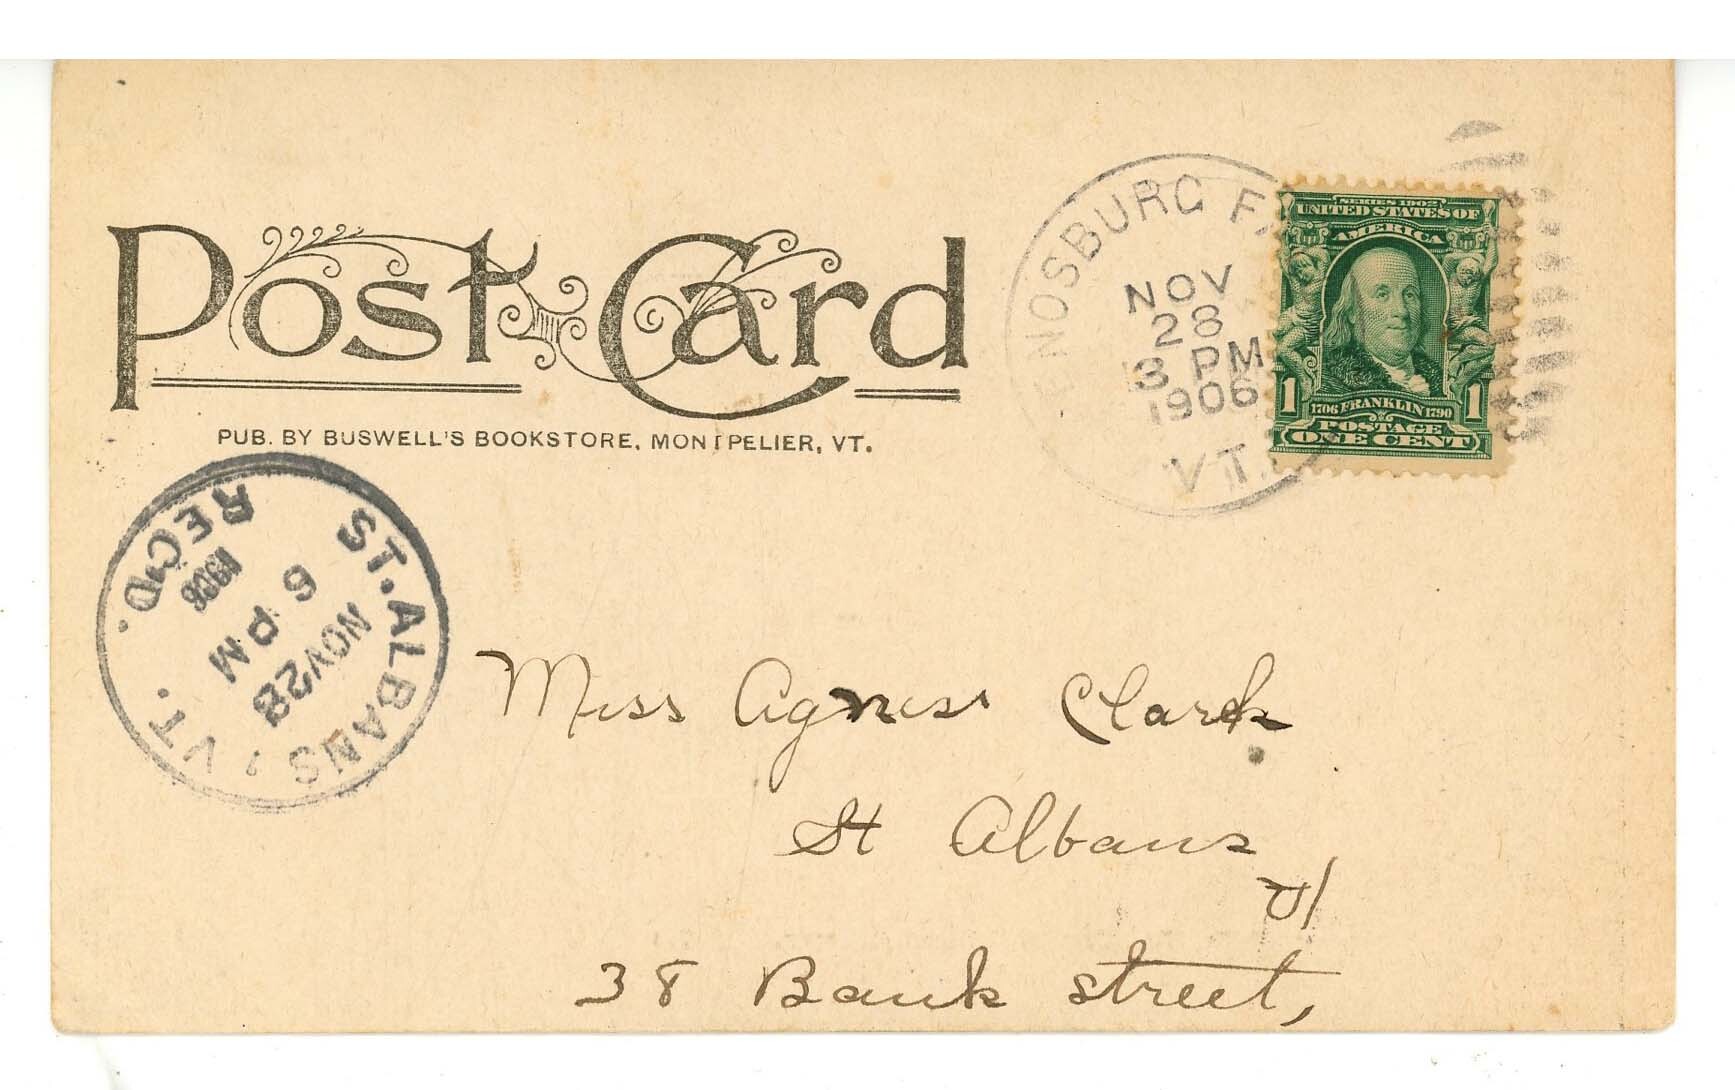 Post Card
PUB. BY BUSWELL'S BOOKSTORE, MONTPELIER, VT.
NOSBURG F
NOV
28
3 PM
1906
VT.
SERIES 1902
UNITED STATES OF
AMERICA
1 1706 FRANKLIN 1790 1
POSTAGE
ONE CENT
ST. ALBANS, VT.
NOV 28
6 PM
1906
REC'D.
Miss Agnes Clark
St Albans
38 Bank street,